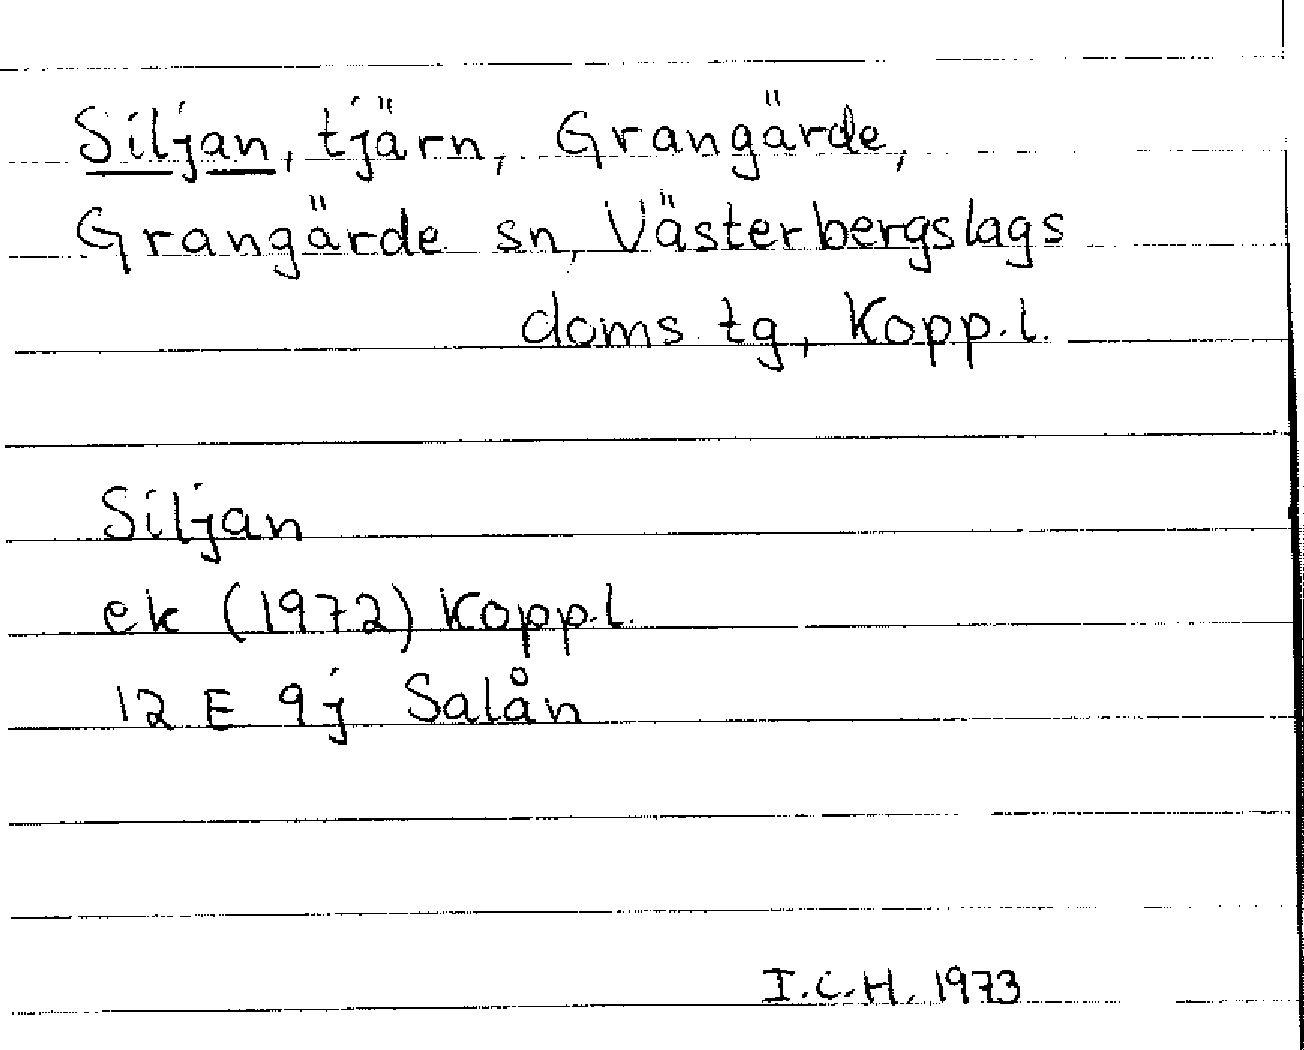 Siljan, tjärn, Grangärde,
Grangärde sn, Västerbergslags
doms tg, Kopp.l.
Siljan
ek (1972) Kopp.l.
12 E 9j Salån
I.C.H. 1973